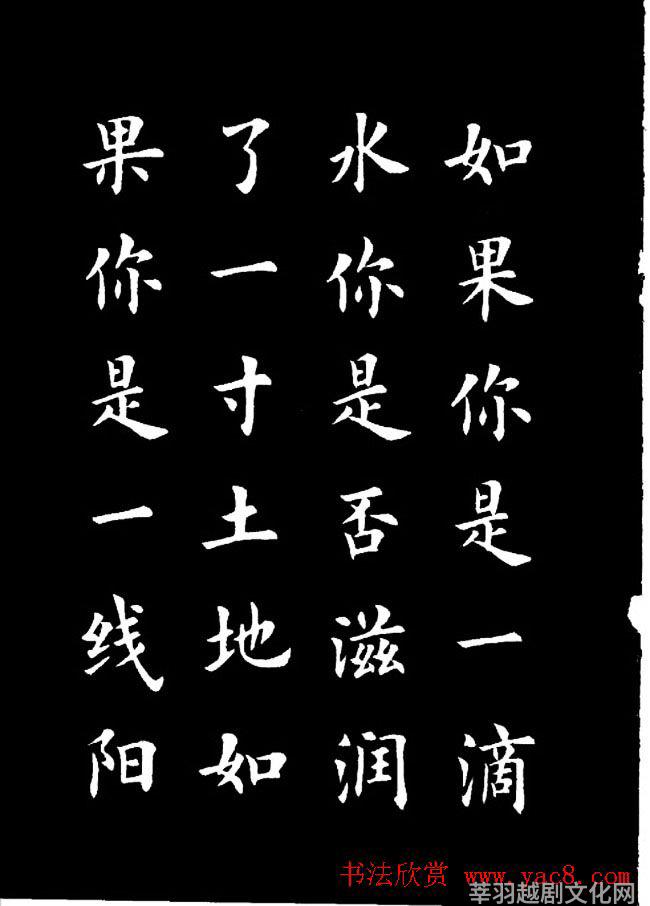 如果你是一滴
水你是否滋润
了一寸土地如
果你是一线阳
书法欣赏 www.yac8.com
莘羽越剧文化网